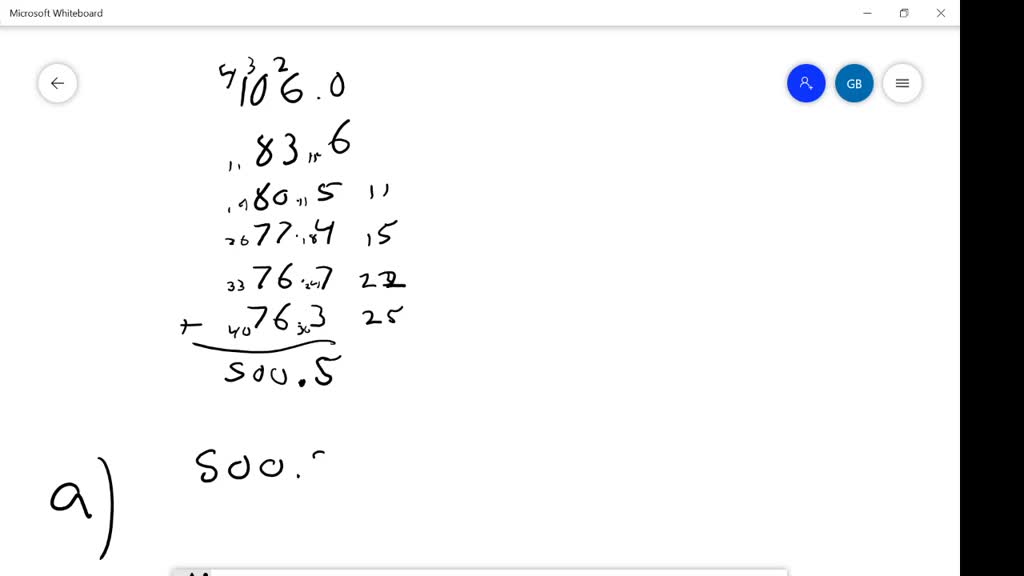 Microsoft Whiteboard
GB
5 3 2
106.0
11 83.15 6
19 80.11 5 11
26 77.18 4 15
33 76.24 7 22
+ 40 76.30 3 25
500.5
a) 500.